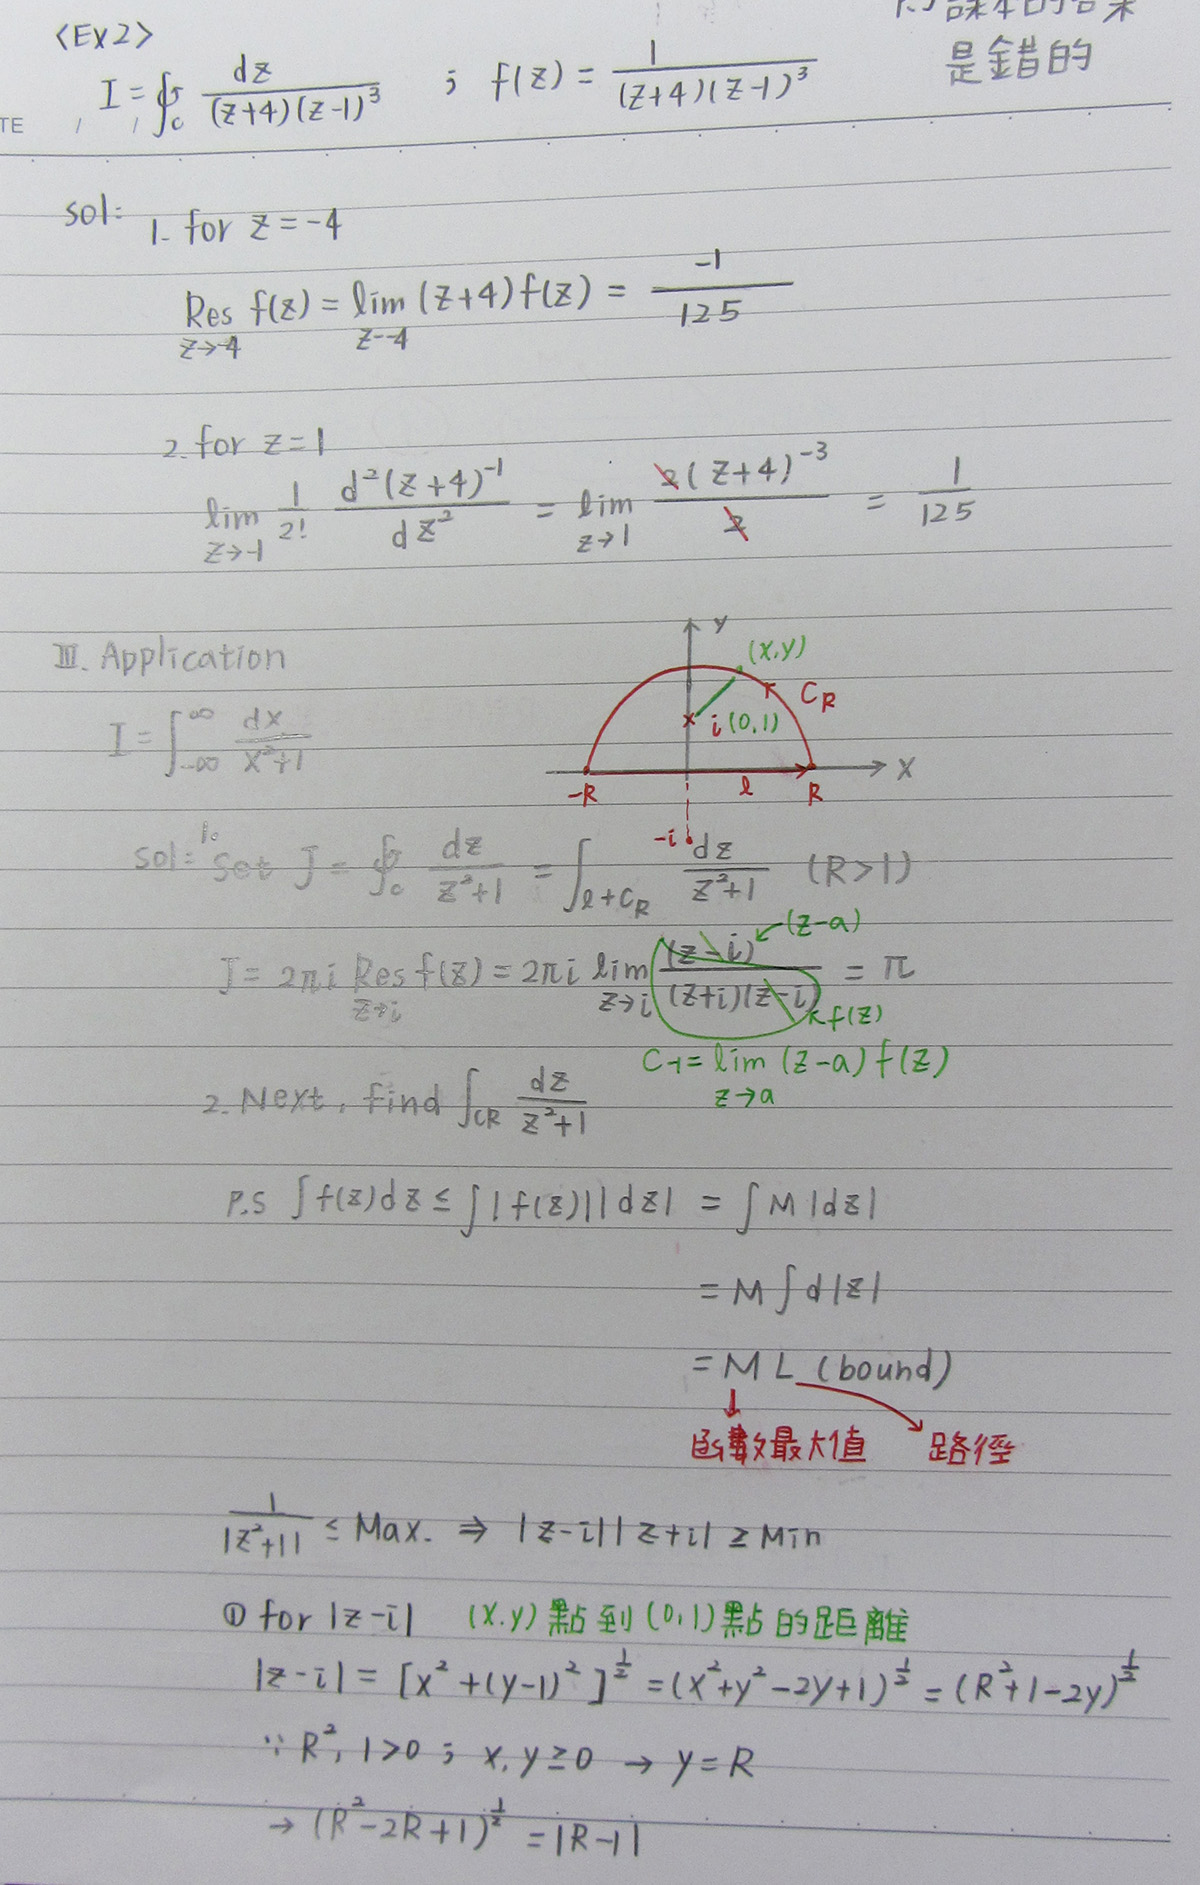 <Ex2>
是錯的
I = ∮_c dz / (z+4)(z-1)^3 ; f(z) = 1 / (z+4)(z-1)^3
TE / /
sol: 1. for z = -4
Res_{z→-4} f(z) = lim_{z--4} (z+4) f(z) = -1 / 125
2. for z = 1
lim_{z→-1} 1/2! d^2(z+4)^{-1} / dz^2 = lim_{z→1} 2(z+4)^{-3} / 2 = 1 / 125
Ⅲ. Application
I = ∫_{-∞}^{∞} dx / x^2+1
Y
(x,y)
C_R
i (0,1)
-R l R X
-i
sol: 1. Set J = ∮_c dz / z^2+1 = ∫_{l+C_R} dz / z^2+1 (R>1)
(z-a)
J = 2πi Res_{z→i} f(z) = 2πi lim_{z→i} (z-i) / (z+i)(z-i) = π
f(z)
C_{-1} = lim_{z→a} (z-a) f(z)
2. Next, find ∫_{CR} dz / z^2+1
P.S ∫f(z)dz ≤ ∫|f(z)||dz| = ∫M|dz|
= M∫d|z|
= ML (bound)
函數最大值 路徑
1 / |z^2+1| ≤ Max. ⇒ |z-i||z+i| ≥ Min
① for |z-i| (x.y)點到(0,1)點的距離
|z-i| = [x^2+(y-1)^2]^{1/2} = (x^2+y^2-2y+1)^{1/2} = (R^2+1-2y)^{1/2}
∵ R^2, 1>0 ; x,y≥0 → y=R
→ (R^2-2R+1)^{1/2} = |R-1|